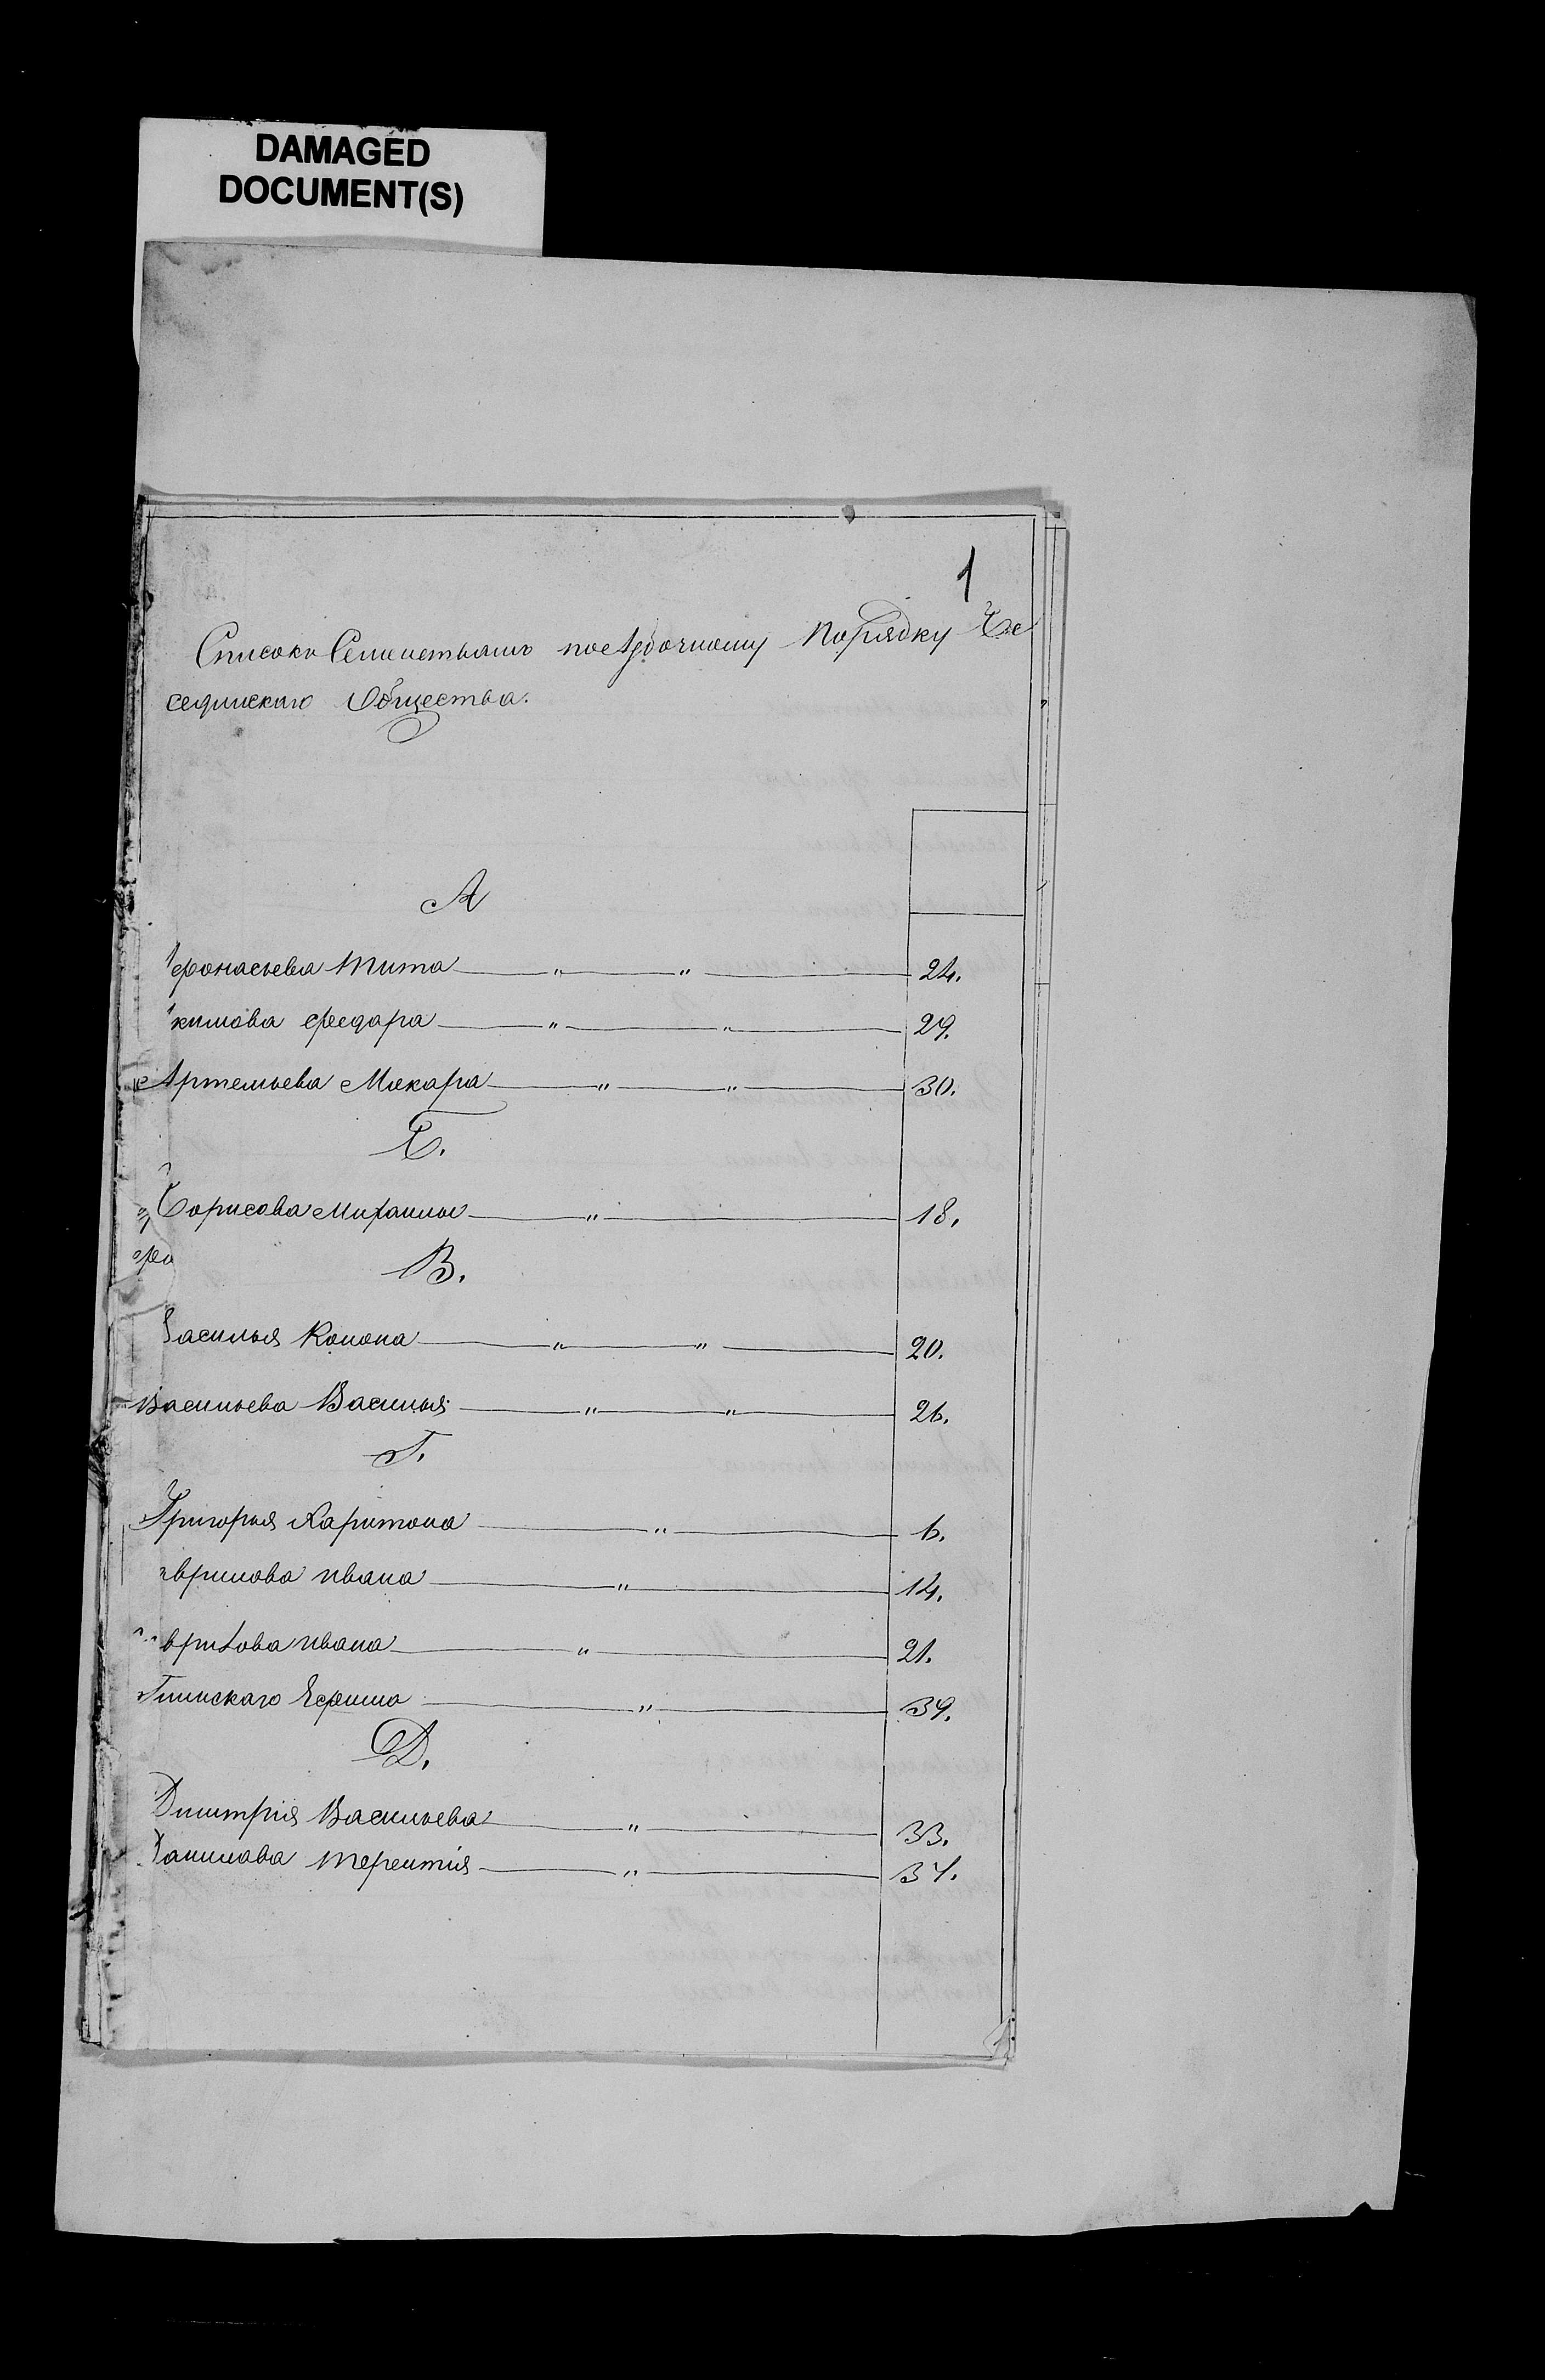 DAMAGED
DOCUMENT(S)
1
Список Семействамъ поазбочному порядку Бе
сединскаго Общества.
А
Афонасьева Тита — " — " — 24.
Акимова Федара — " — " — 29.
Артемьева Макара — " — " — 30.
Б.
Борисова Михаилы — " — 18.
В.
Василья Конона — " — " — 20.
Васильева Василья — " — " — 26.
Г.
Григорья Харитона — " — 6.
аврилова ивана — " — 14.
 врилова ивана — " — 21.
Ефима — " — 39.
Д.
Дмитрія Васильева — " — 33.
Данилава терентія — " — 37.